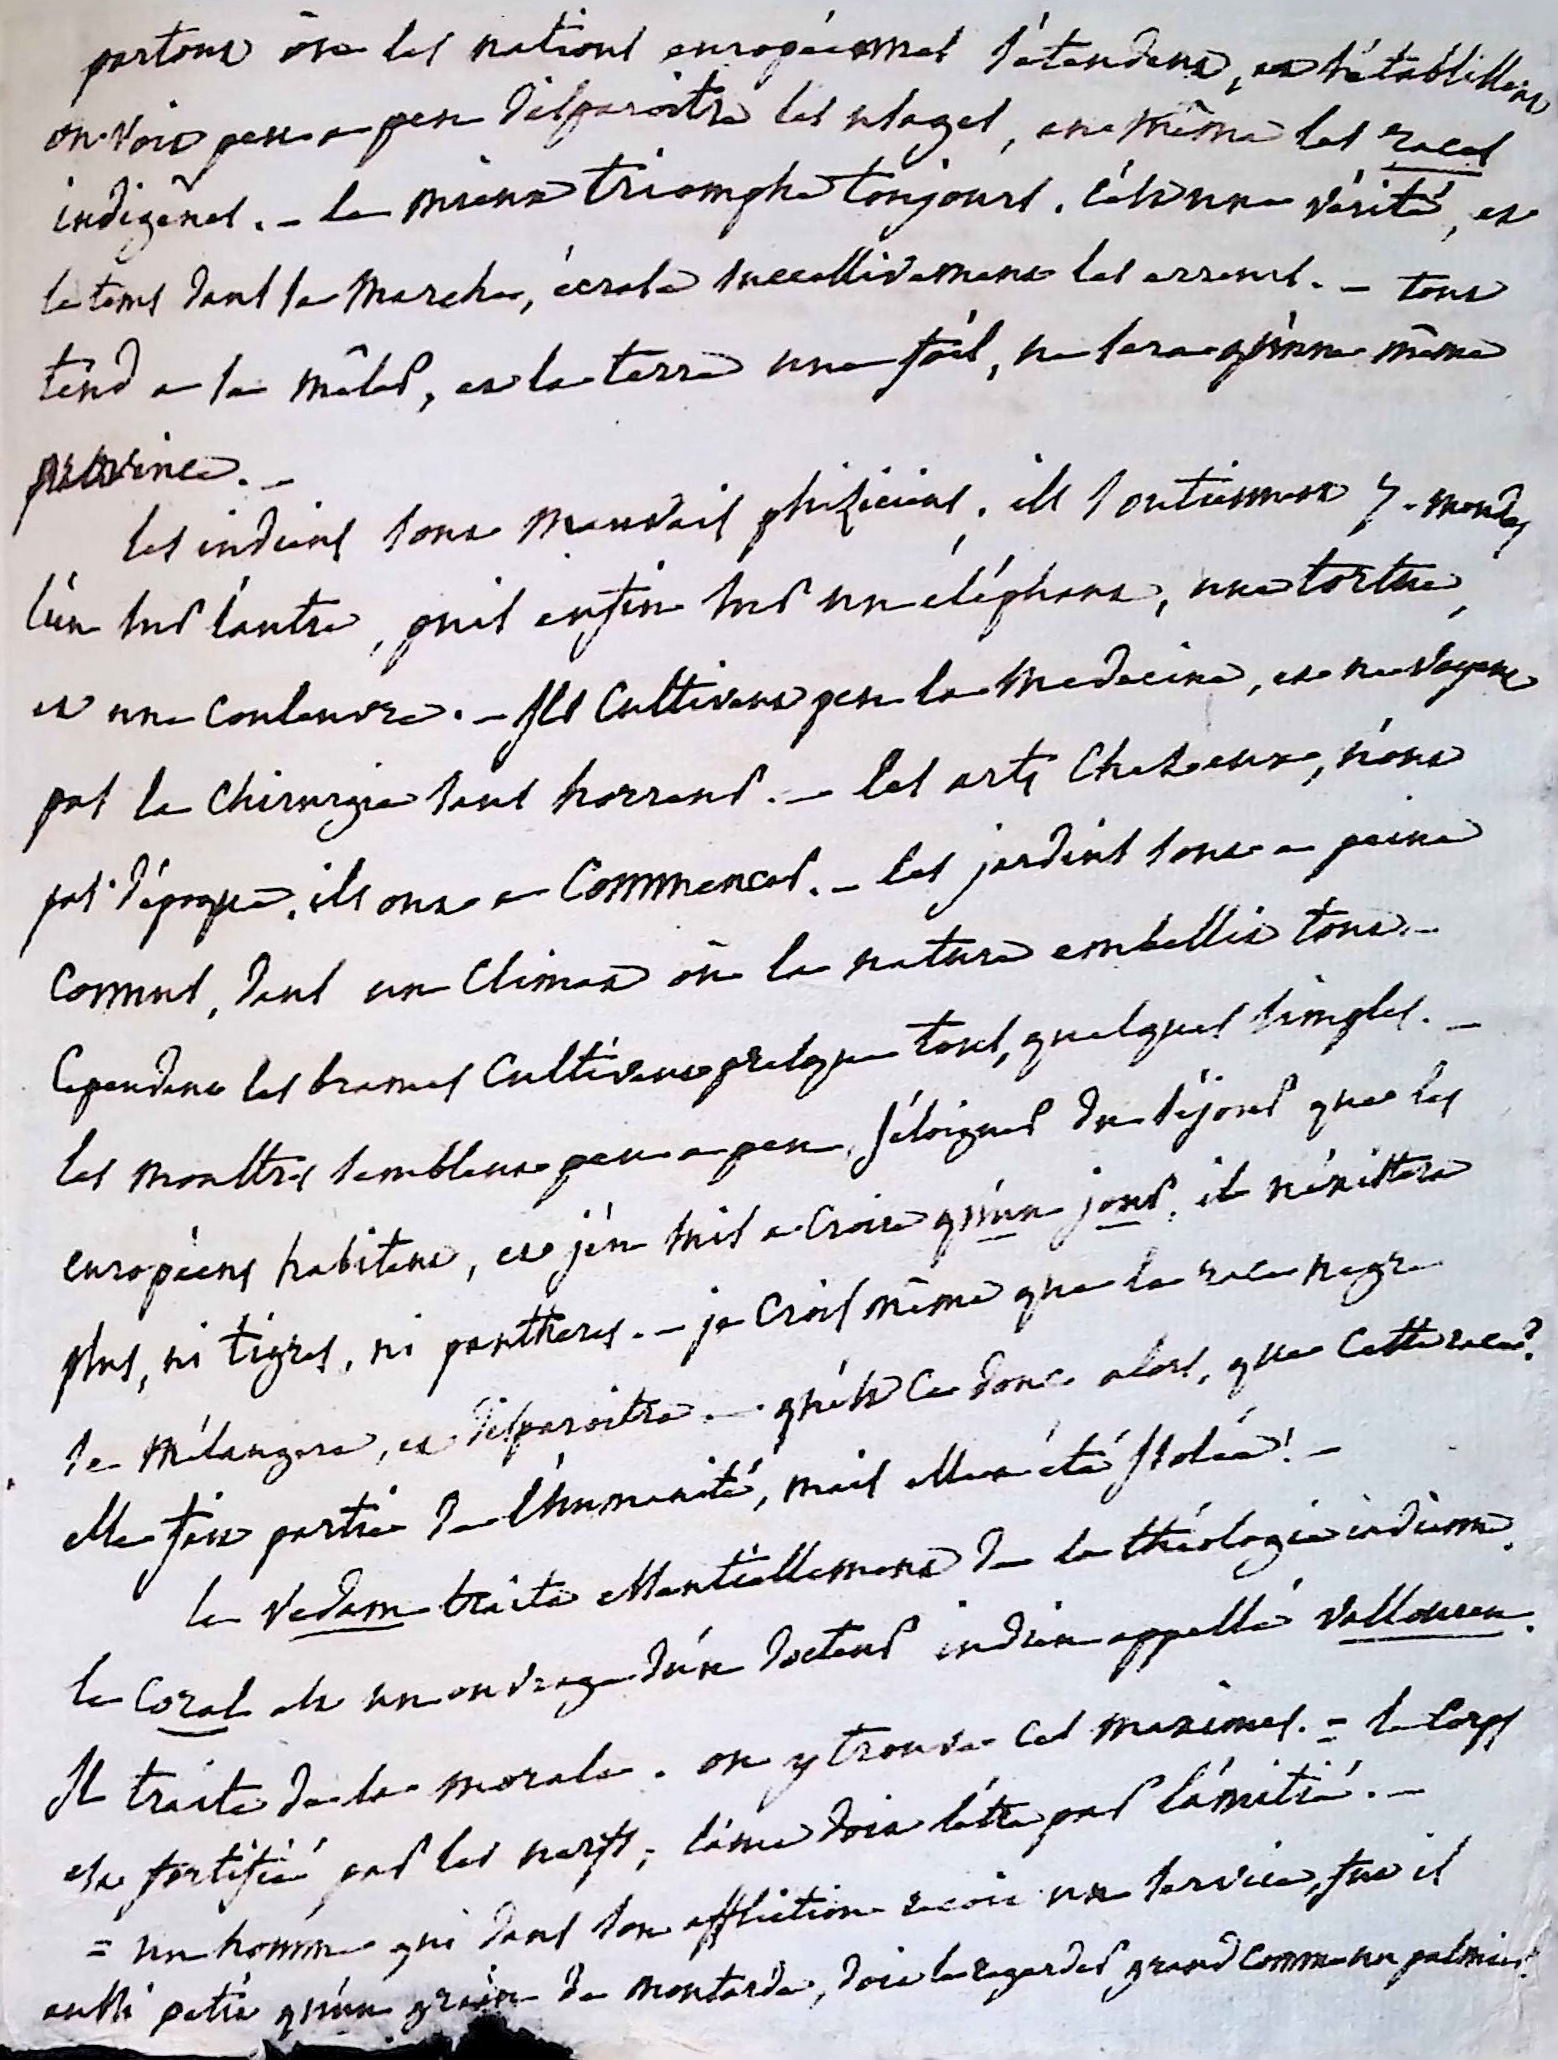 partout où les nations européennes s'étendent, et s'établissent
on voit peu a peu disparoitre les usages, et même les races
indigênes. - le mieux triomphe toujours. c'ést une vérité, et
le tems dans sa marche, écrase successivement les erreurs. - tout
tend a se mêler, et la terre une fois, ne sera qu'une même
province. -
les indiens sont mauvais phiziciens. ils soutiennent 7. mondes
l'un sur l'autre, puis enfin sur un éléphant, une tortue,
et une couleuvre. - Ils cultivent peu la medecine, et ne voyent
pas la chirurgie sans horreur. - les arts chez eux, n'ont
pas d'époque. ils ont a commencer. - les jardins sont a peine
connus, dans un climat où la nature embellit tout. -
Cependant les brames cultivent presque tous, quelques simples. -
les monstres semblent peu a peu, s'éloigner du séjour que les
européens habitent, et j'en suis a croire qu'un jour, il n'éxistera
plus, ni tigres, ni pantheres. - je crois même que la race negre
se mélangera, et disparoitra. - qu'ést ce donc alors, que cette race?
elle fait partie de l'humanité, mais elle a été isolée! -
le vedam traite essentiellement de la théologie indienne.
le coral est un ouvrage d'un docteur indien appellé vallouren.
Il traite de la morale. on y trouve ces maximes. = le corps
est fortifié par les nerfs; l'ame doit l'être par l'amitié. -
= un homme qui dans son affliction recoit un service, fut il
aussi petit qu'un grain de moutarde, doit le regarder grand comme un palmier.